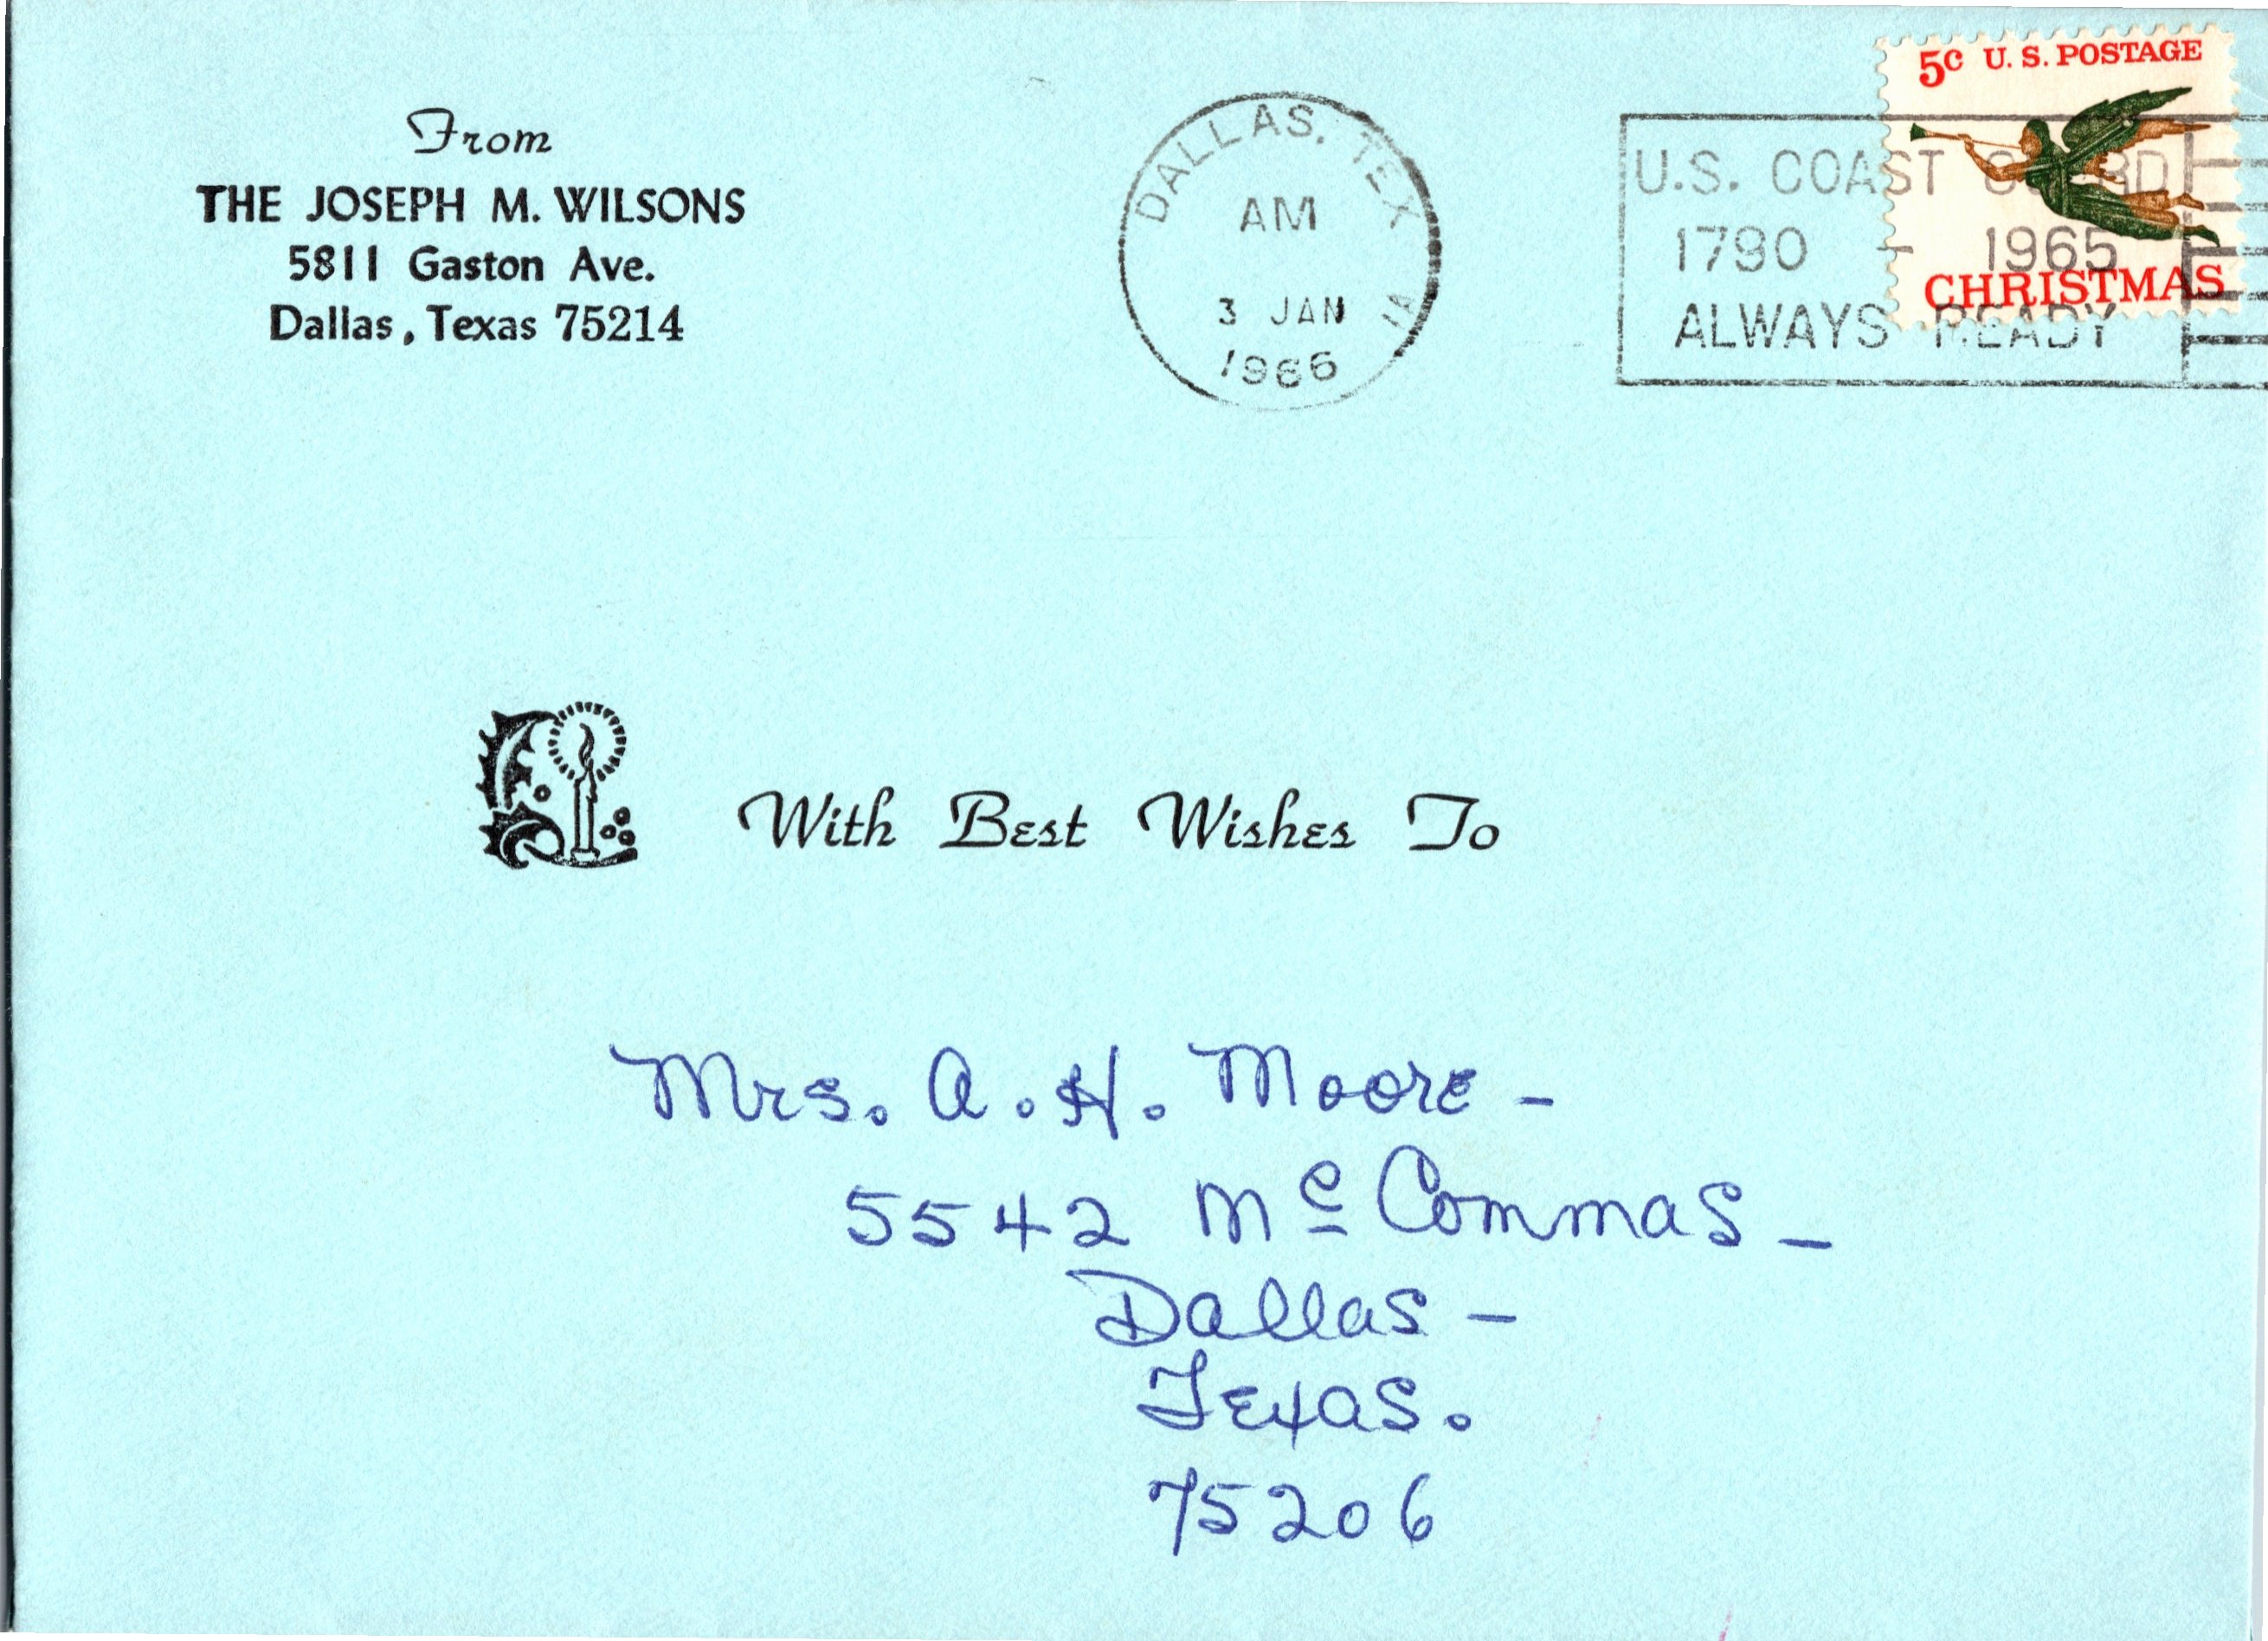 From
THE JOSEPH M. WILSONS
5811 Gaston Ave.
Dallas, Texas 75214
DALLAS, TEX
AM
3 JAN
1966
5c U. S. POSTAGE
CHRISTMAS
U.S. COAST GUARD
1790 - 1965
ALWAYS READY
With Best Wishes To
Mrs. A. H. Moore -
5542 Mc Commas -
Dallas -
Texas.
75206